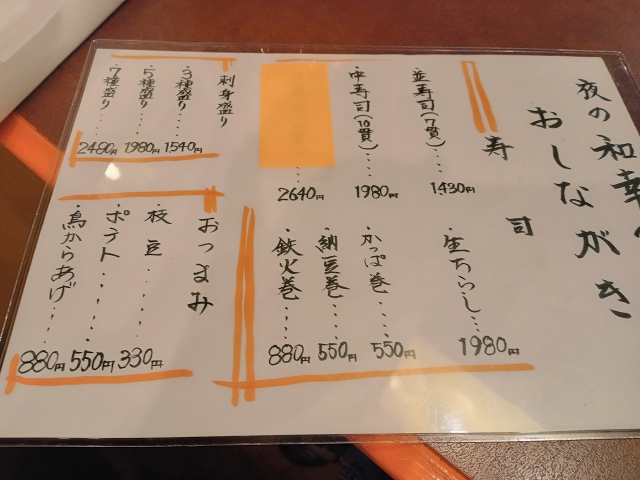 夜の和幸の
おしながき
寿司
・並寿司(7貫)・・・ 1430円
・中寿司(10貫)・・・ 1980円
2640円
・生ちらし・・・ 1980円
・かっぱ巻・・・・ 550円
・納豆巻・・・・ 550円
・鉄火巻・・・・ 880円
刺身盛り
・3種盛り・・・ 1540円
・5種盛り・・・ 1980円
・7種盛り・・・ 2480円
おつまみ
・枝豆・・・・・ 330円
・ポテト・・・・・ 550円
・鳥からあげ・・・ 880円